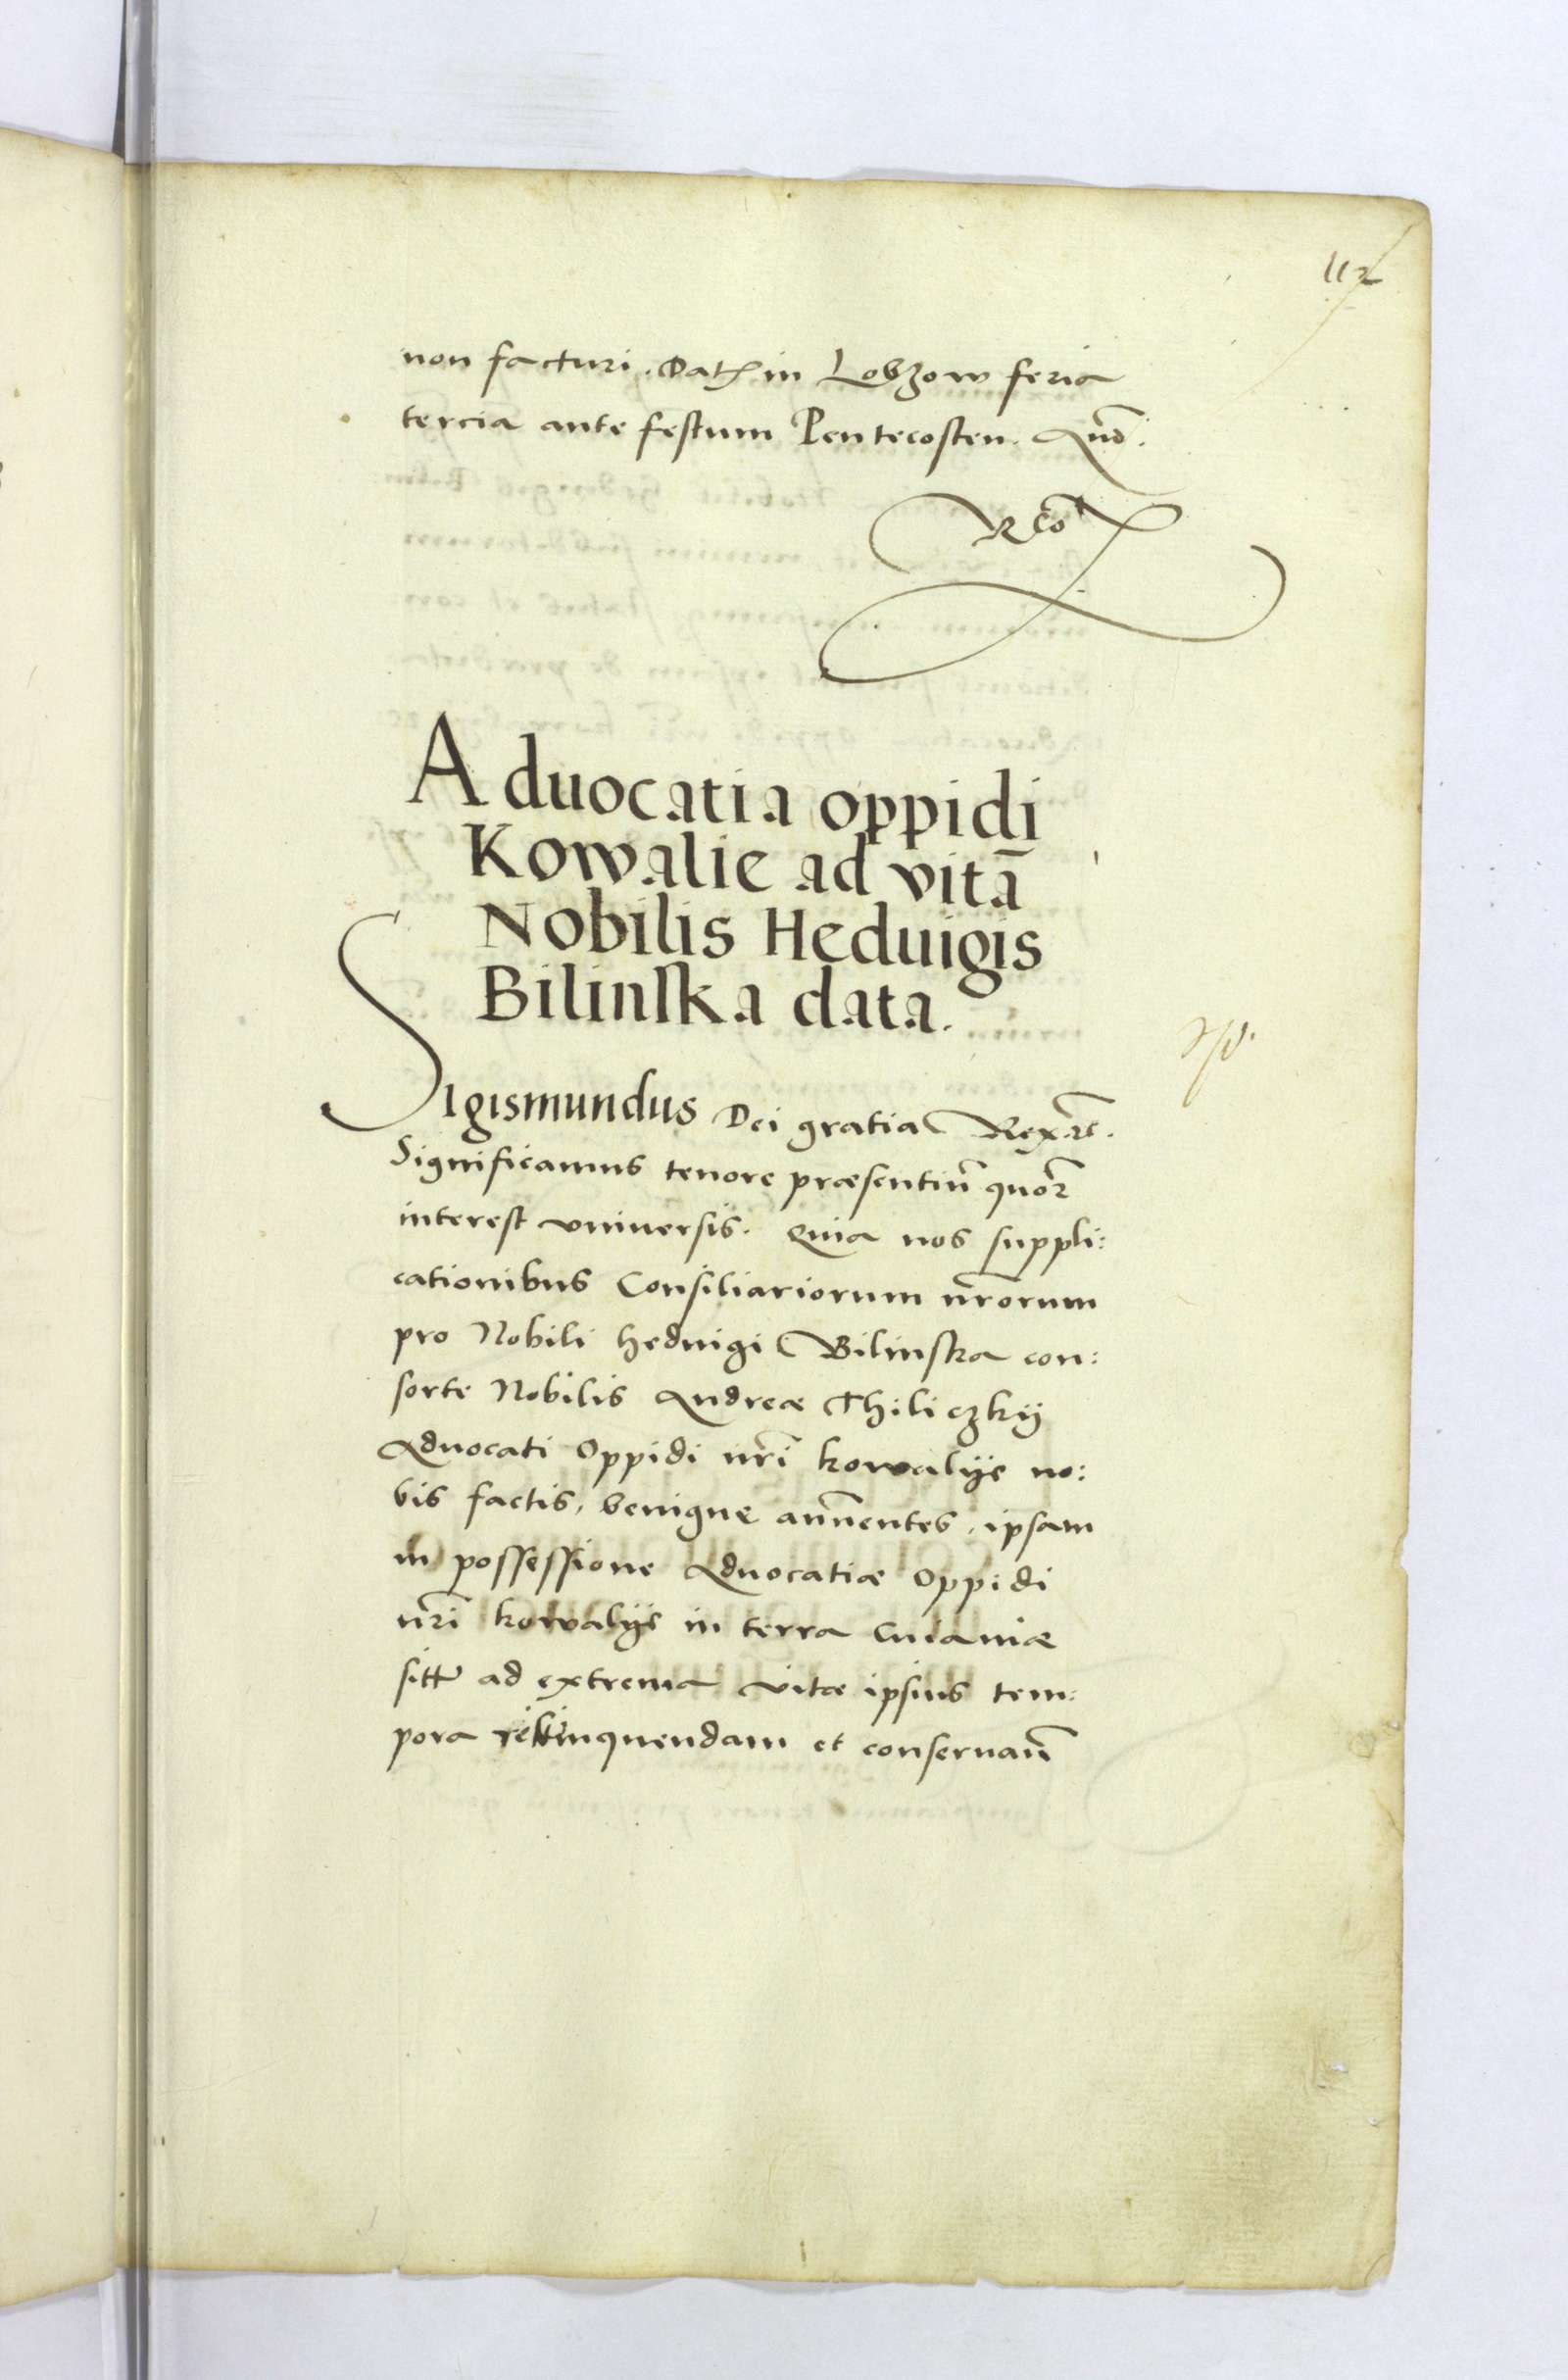 112
non facturi. Dat in Lobzow feria
tercia ante festum Pentecosten. Anō.
Rēō
Aduocatia oppidi
Kowalie ad vitā
Nobilis Heduigis
Bilinſka data.
Sigismundus Dei gratia Rex etc.
Significamus tenore præsentiū quor
interest vniuersis. Quia nos suppli:
cationibus Consiliariorum nrōrum
pro Nobili Heduigi Bilinska con:
sorte Nobilis Andreæ Thiliczkij
Aduocati Oppidi nrī Kowalije no:
bis factis, benigne annuentes, ipsam
in possessione Aduocatiæ Oppidi
nrī Kowalije in terra Cuiauiæ
ad extrema vitæ ipsius tem:
pora relinquendam et conseruan̄